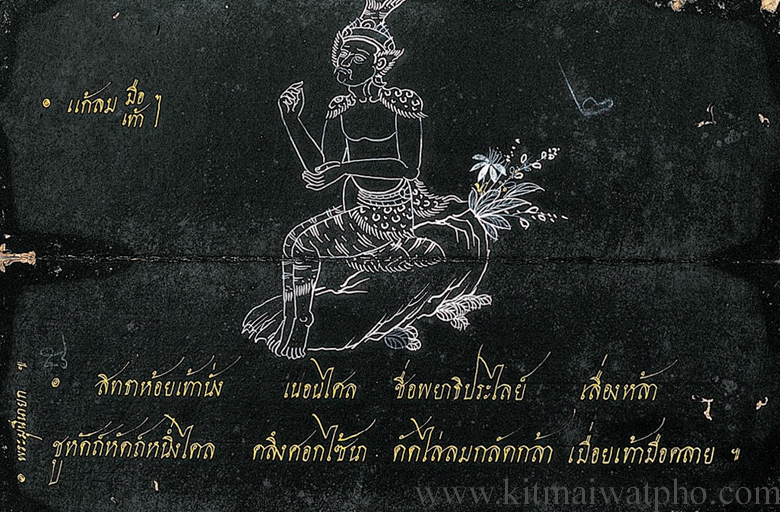 ๏ แก้ลม มือ
เท้า ๅ
๏ สิทธาห้อยเท้านั่ง เนอนไศล ชื่อพยาธิประไลย์ เลื่องหล้า
ชูหัดถ์หัดถ์หนึ่งไคล คลึงศอกไช้นา ดัดไล่ลมกลัดกล้า เมื่อยเท้ามือคลาย ๚
๏ พระมุนีนายก ๚
www.kitmaiwatpho.com